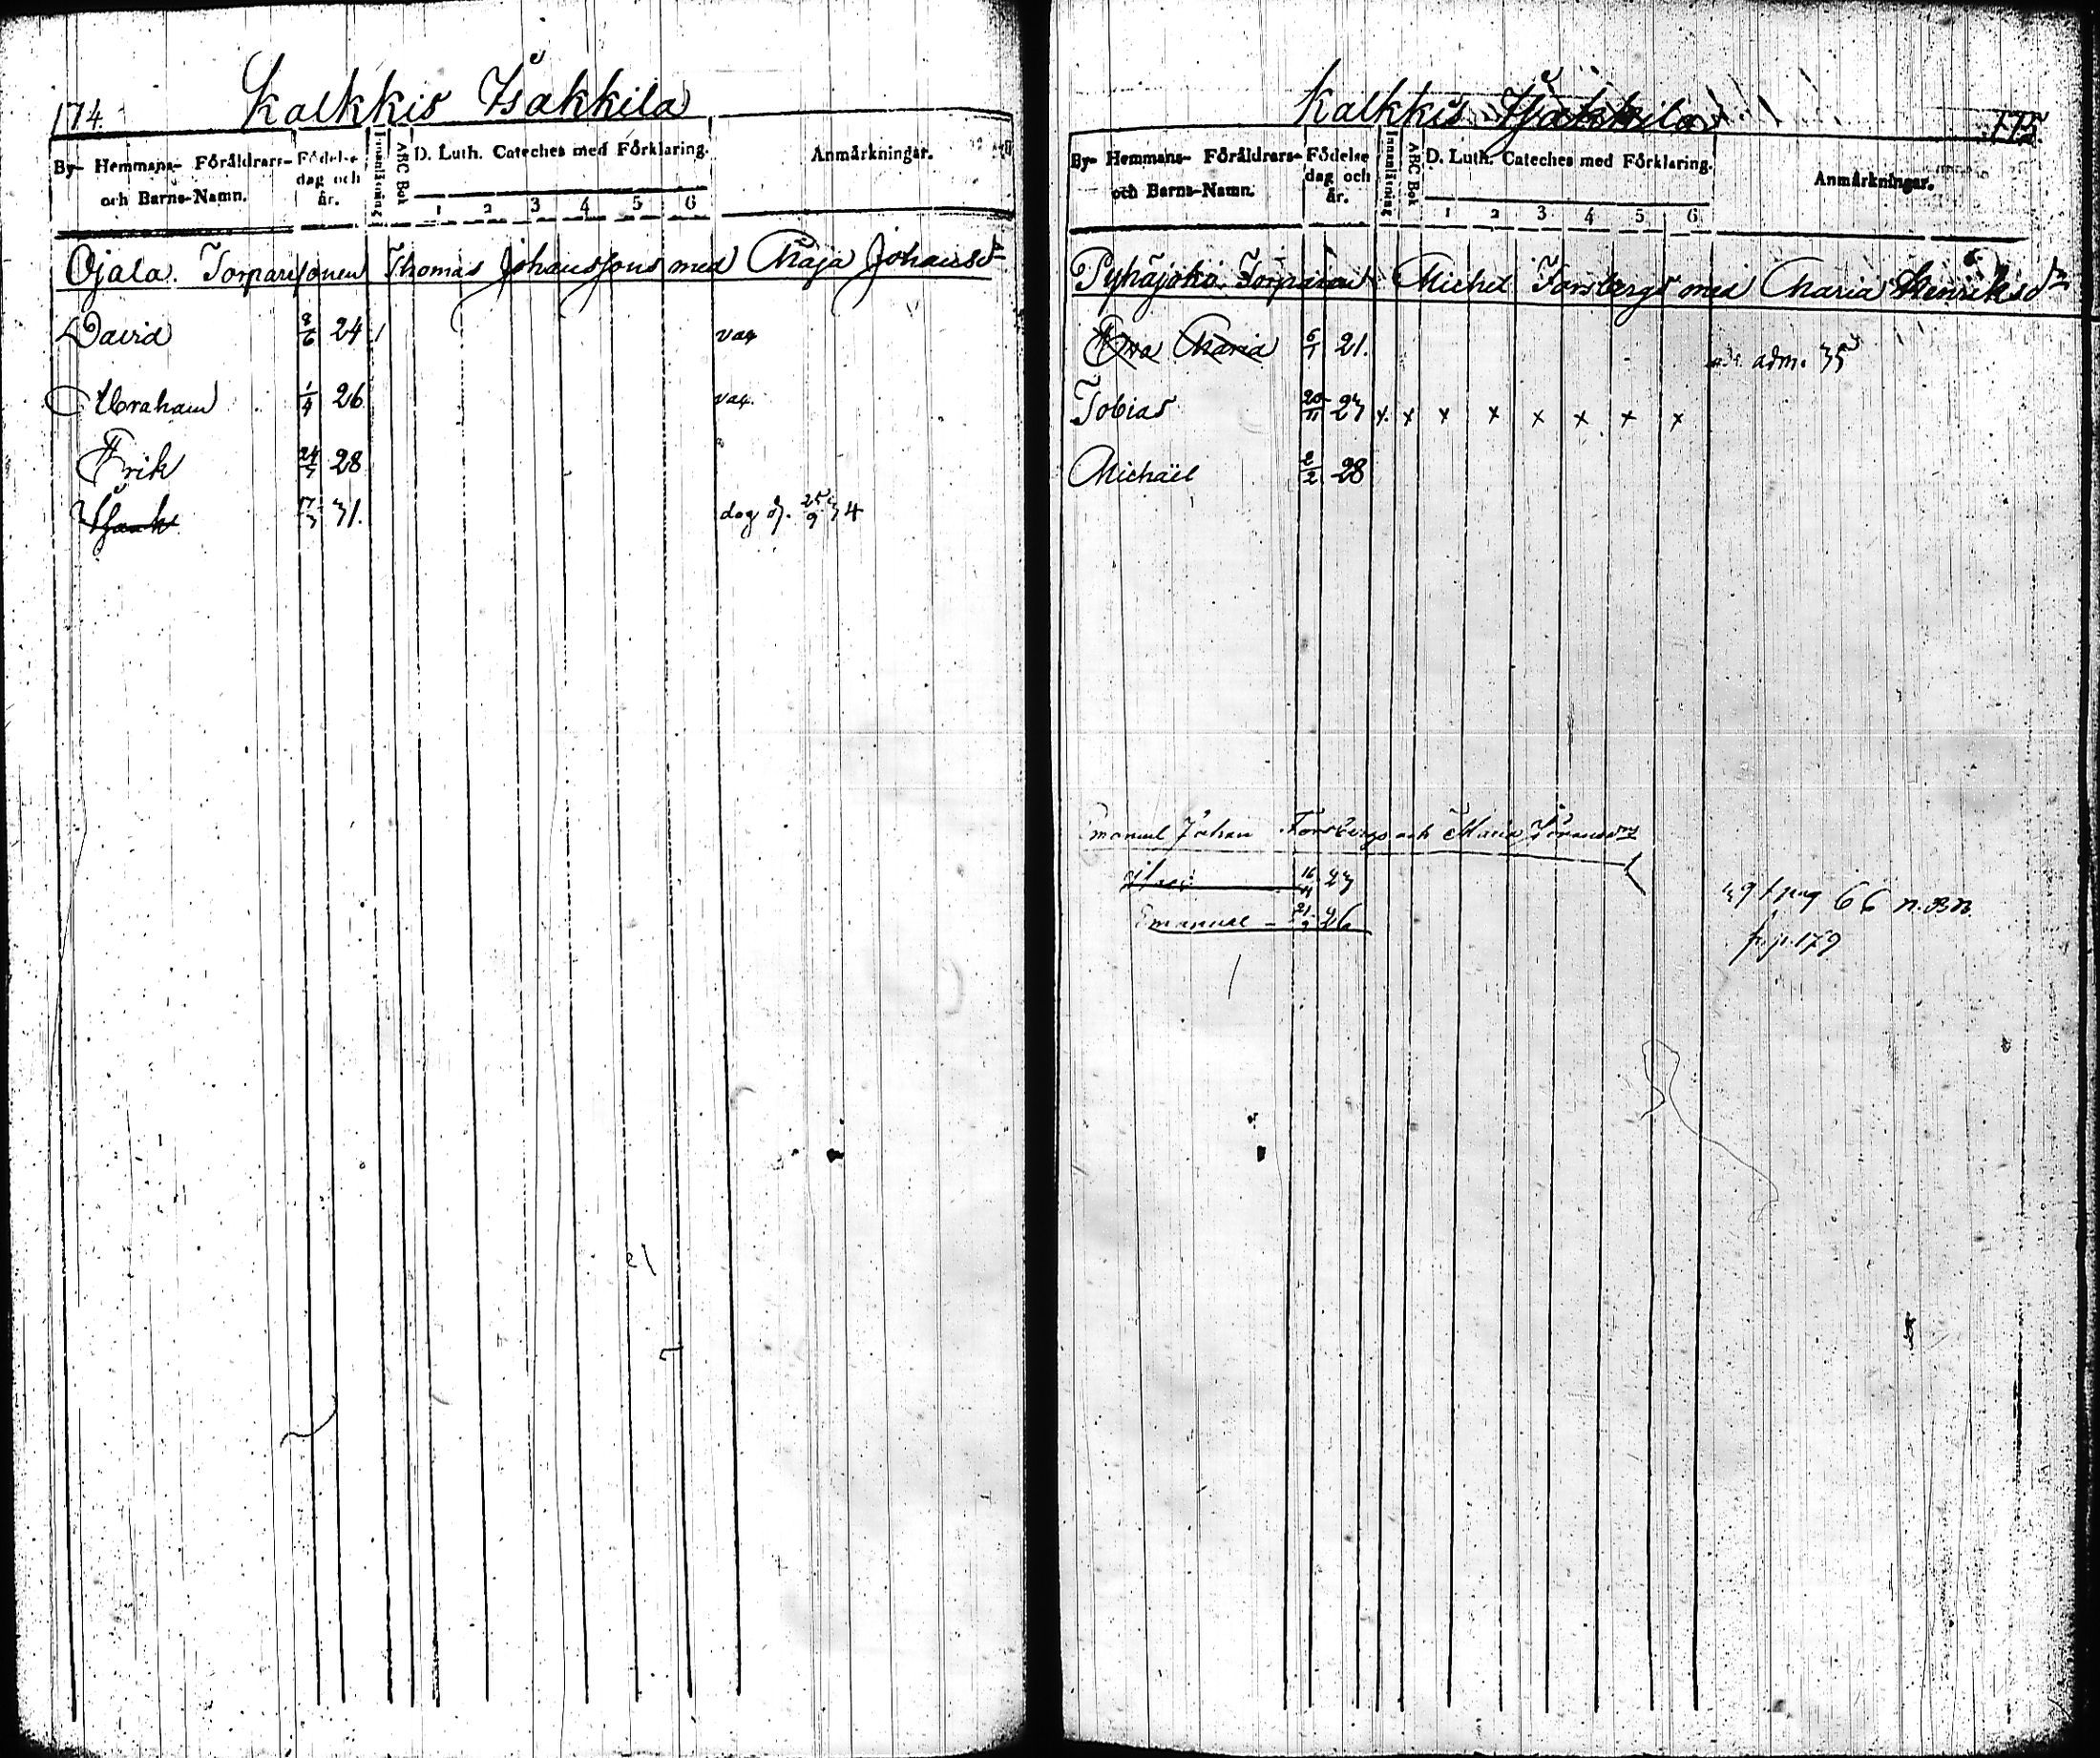 174.
Kalkkis Isakkila
By- Hemmans- Föräldrars- och Barns-Namn. Födelse dag och år. Innanläsning ABC Bok D. Luth. Cateches med Förklaring. 1 2 3 4 5 6 Anmärkningar.
Ojala. Torparesonen Thomas Johanssons med Maja Johansdr
David 8/6 24 / vac
Abraham 1/4 26 vac.
Erik 24/7 28
Isaak 17/3 31. dog d. 25/9 34
Kalkkis Isakkila
175.
By- Hemmans- Föräldrars- och Barns-Namn. Födelse dag och år. Innanläsning ABC Bok D. Luth. Cateches med Förklaring. 1 2 3 4 5 6 Anmärkningar.
Pyhäjoki Torparen Michel Forsbergs med Maria Henriksdr
Eva Maria 6/1 21. adm. 35
Tobias 20/11 23 x x x x x x x x
Michaël 2/2 28
Emanuel Johan Forsbergs och Maria
16/11 23
Emanuel - 21/9 26
pag 66 n. BN.
p. 179